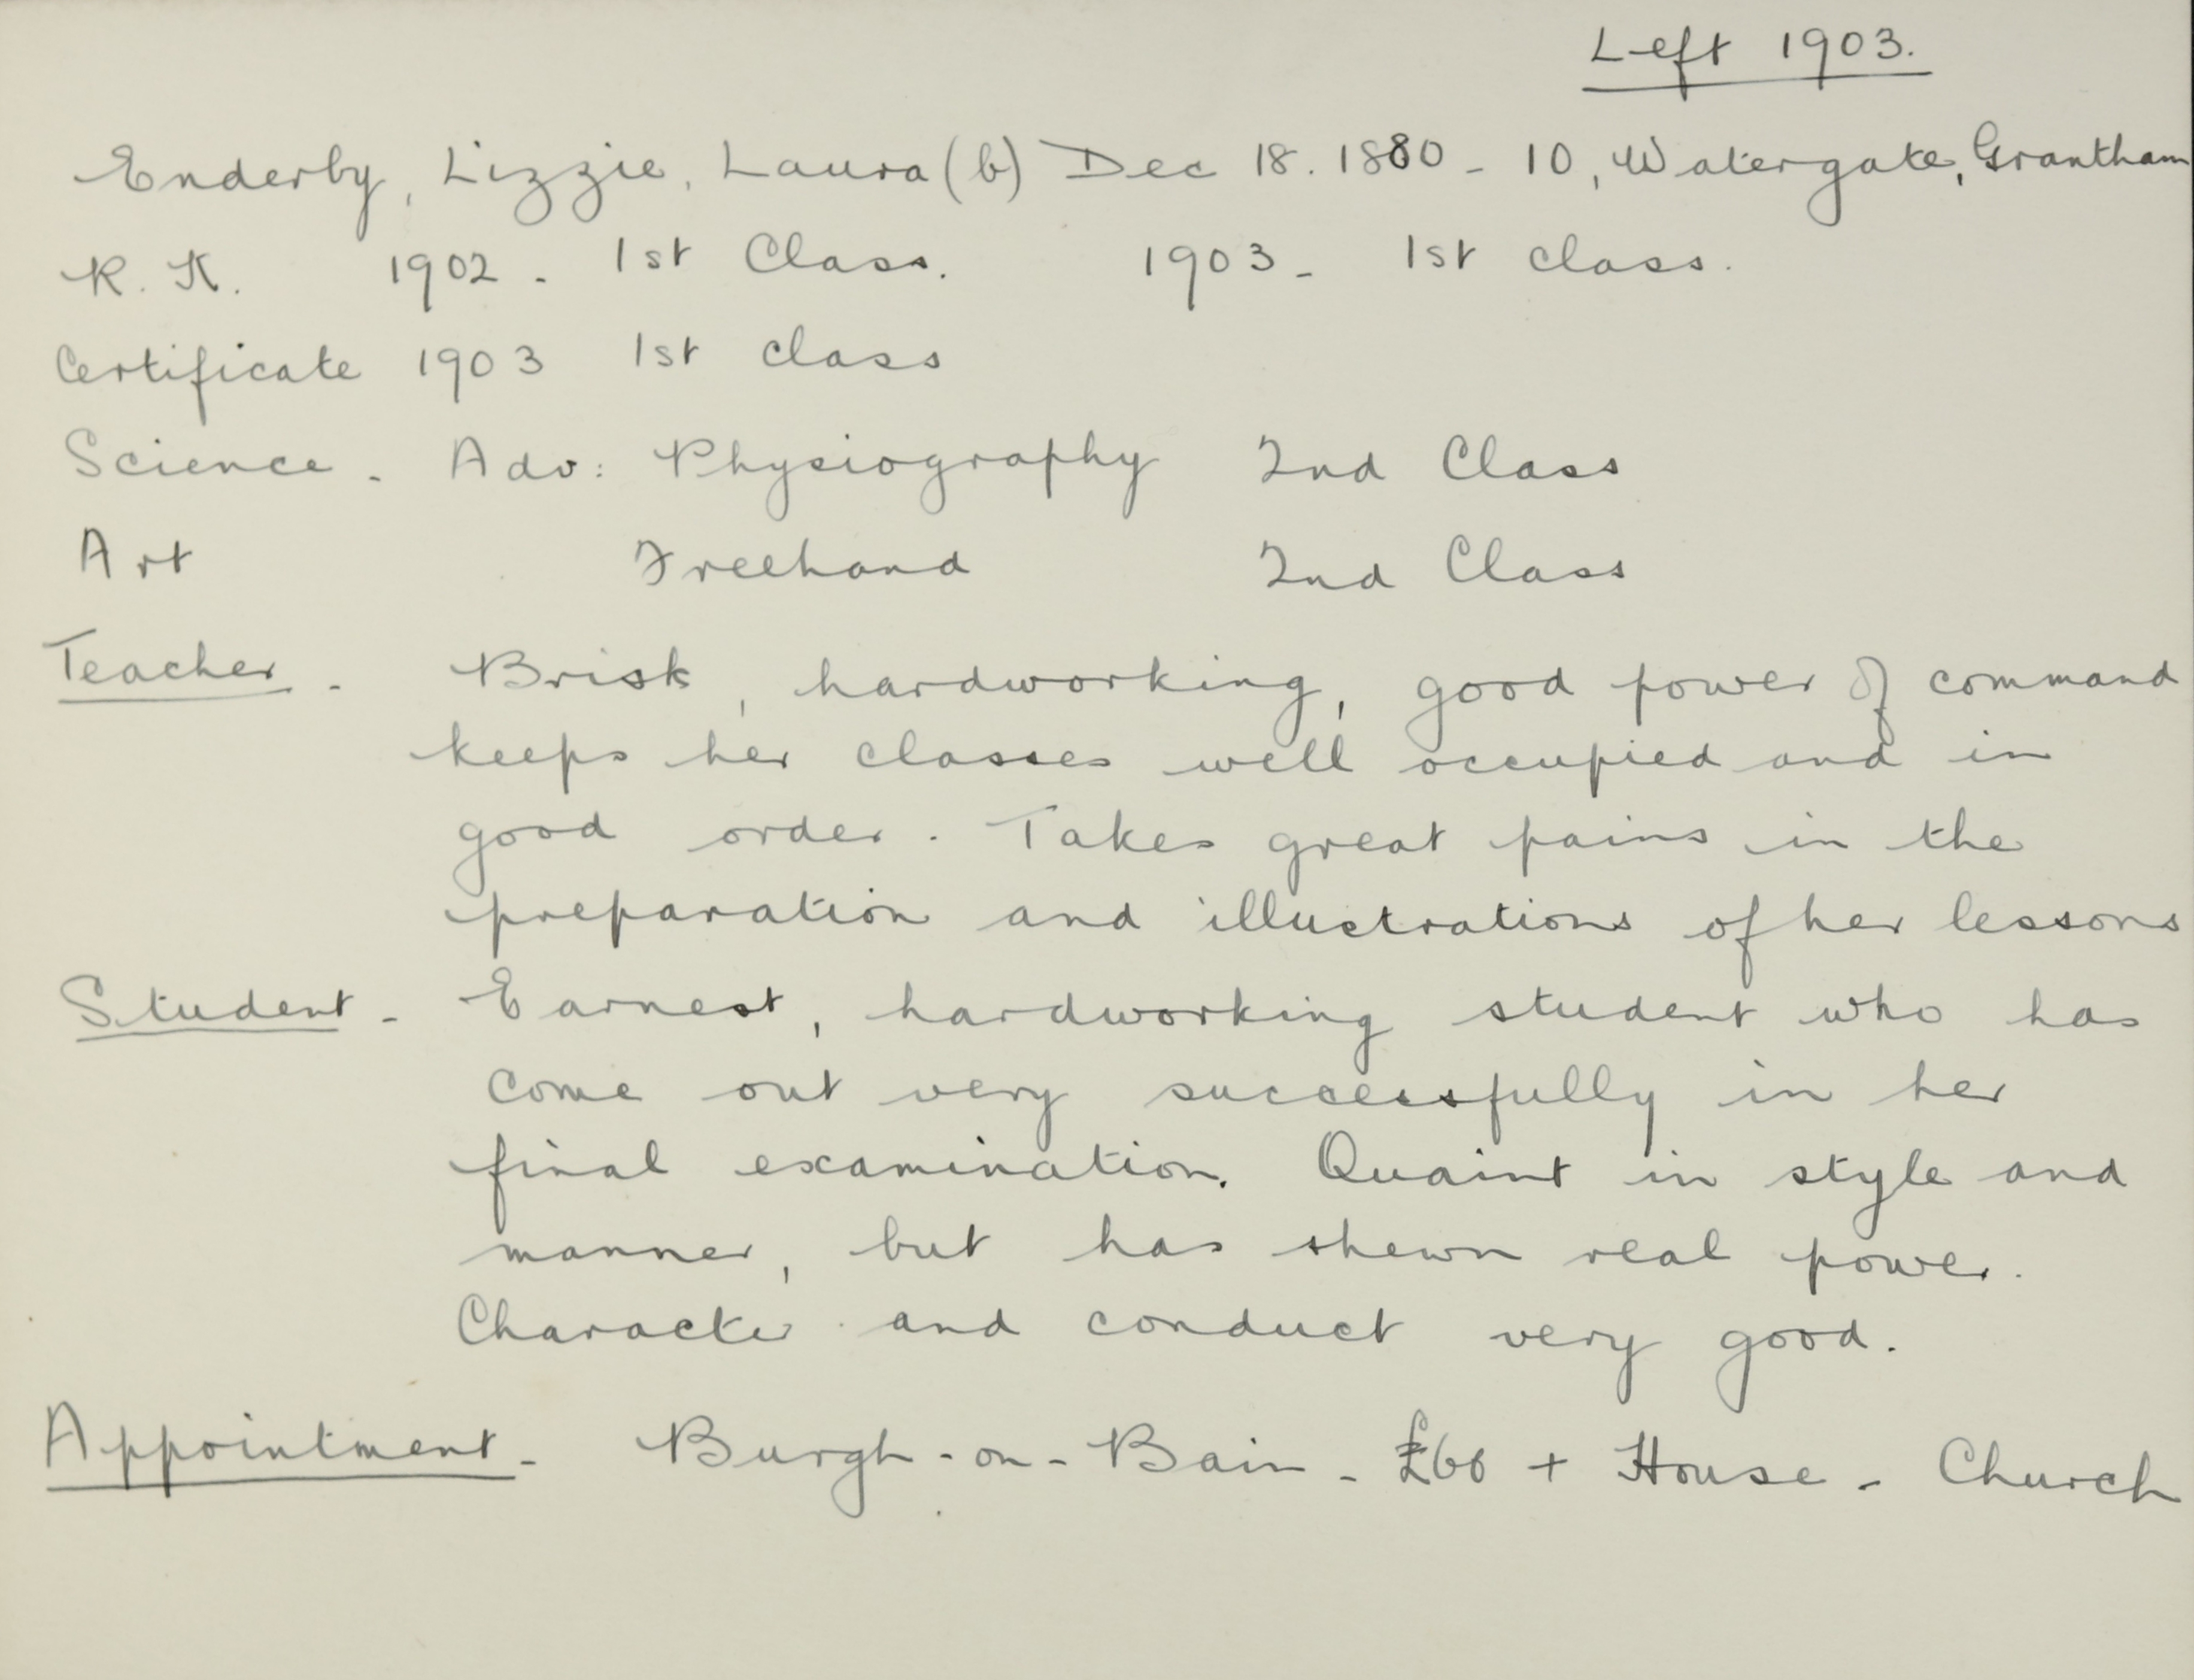 Left 1903.
Enderby, Lizzie, Laura (b) Dec 18. 1880 - 10, Watergate, Grantham
R. K. 1902 - 1st Class. 1903 - 1st class.
Certificate 1903 1st class
Science - Adv: Physiography 2nd Class
Art Freehand 2nd Class
Teacher - Brisk, hardworking, good power of command
keeps her classes well occupied and in
good order. Takes great pains in the
preparation and illustrations of her lessons
Student - Earnest, hardworking student who has
come out very successfully in her
final examination. Quaint in style and
manner, but has shewn real power.
Character and conduct very good.
Appointment - Burgh-on-Bain - £60 + House - Church